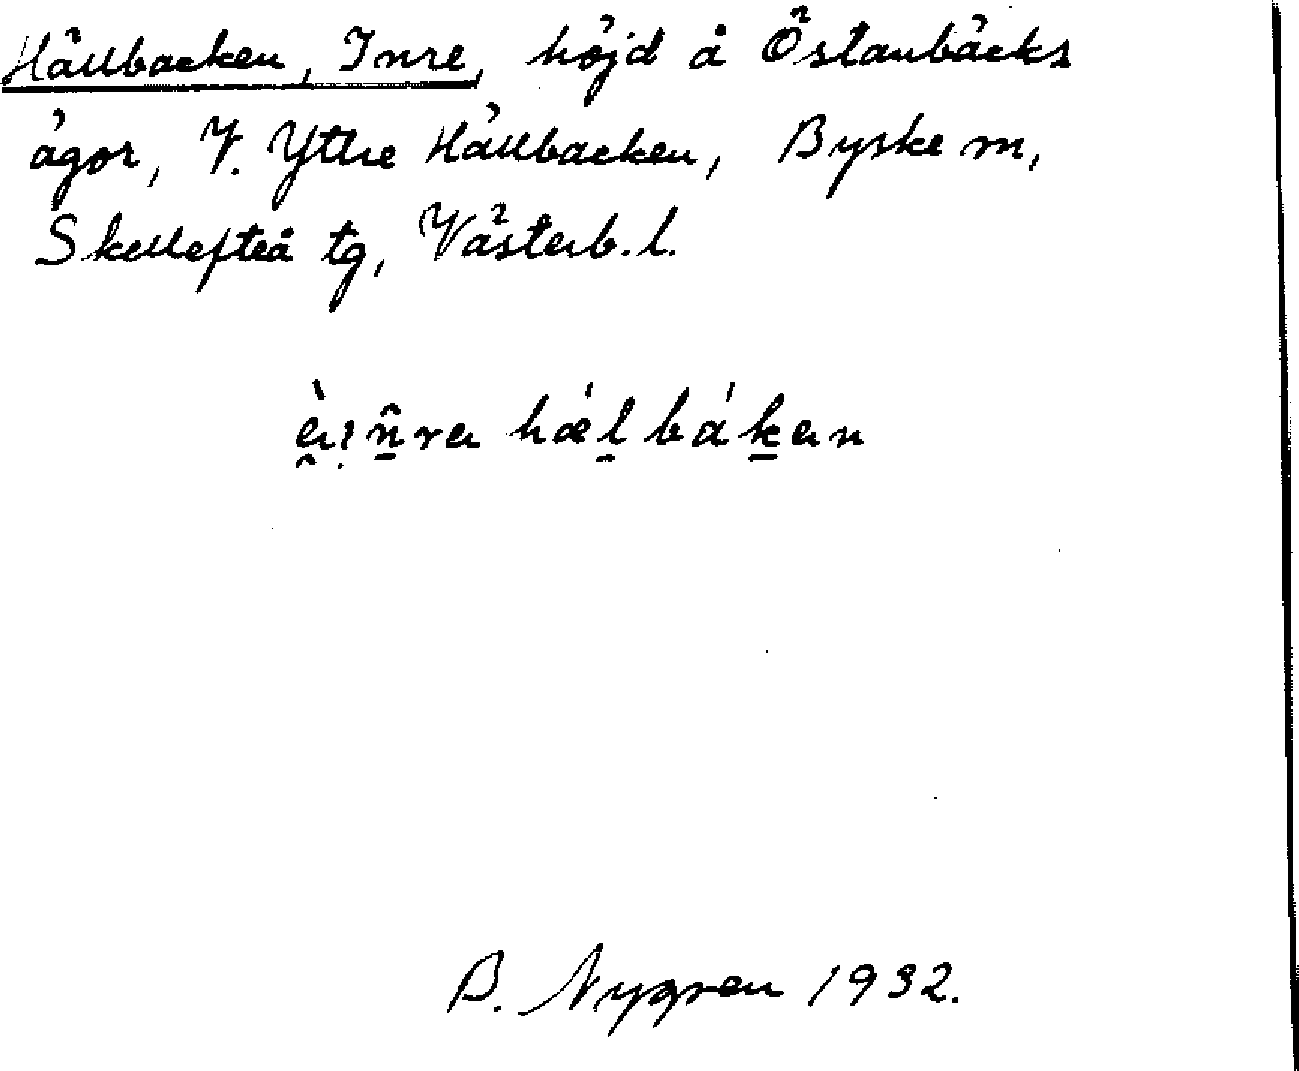 Hällbacken, Inre, höjd å Östanbäcks
ägor, V. Yttre Hällbacken, Byske sn,
Skellefteå tg, Västerb. l.
hǽl bákan
B. Nygren 1932.